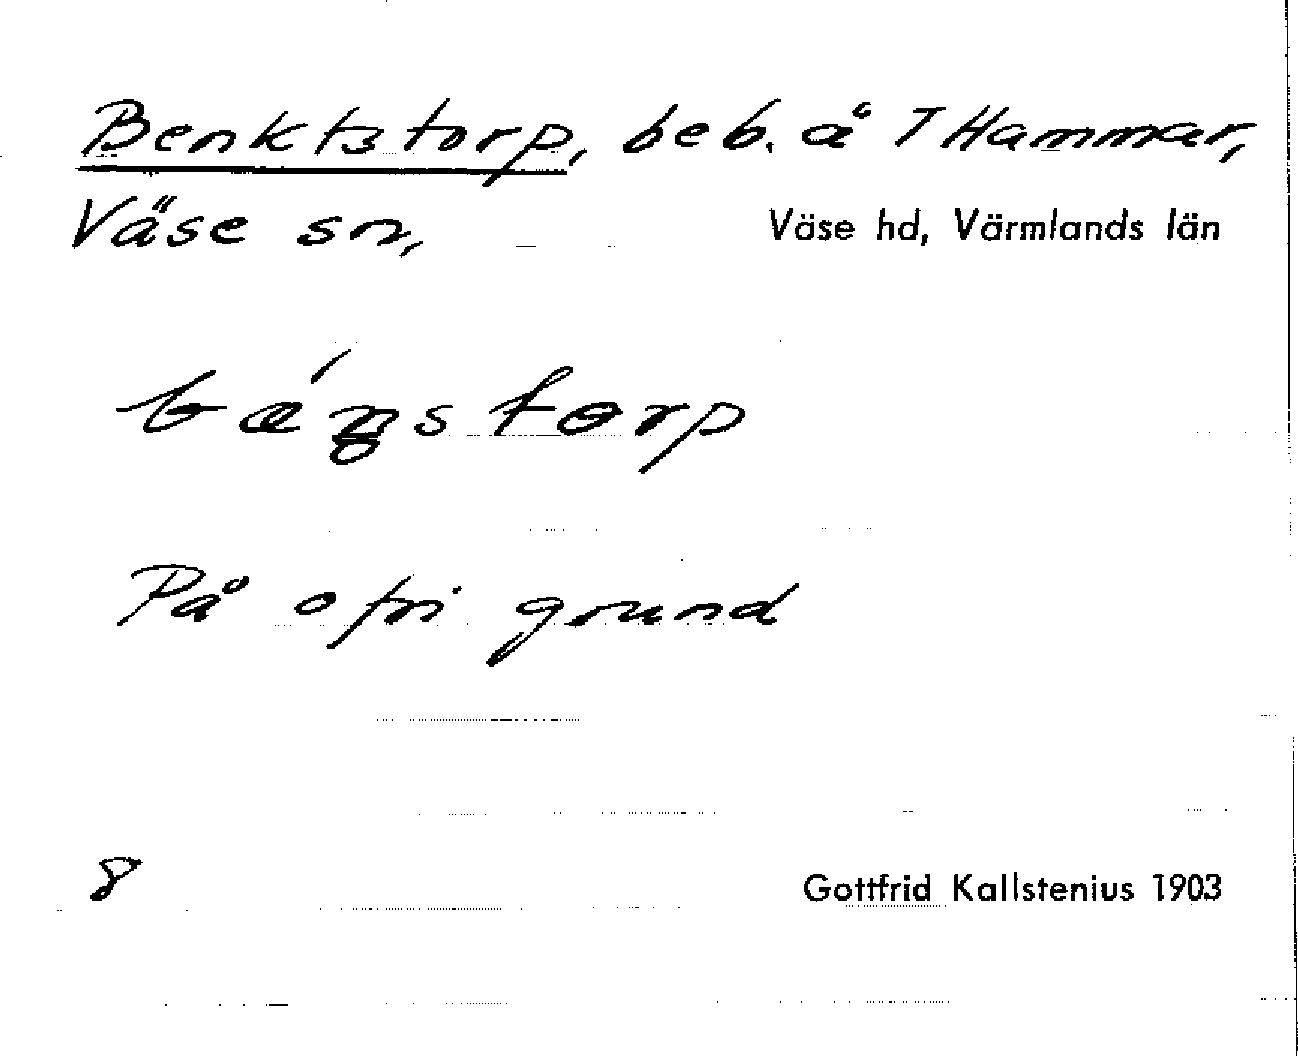 Benktstorp, beb. å T Hammar,
Väse sn, Väse hd, Värmlands län
På ofri grund
8 Gottfrid Kallstenius 1903